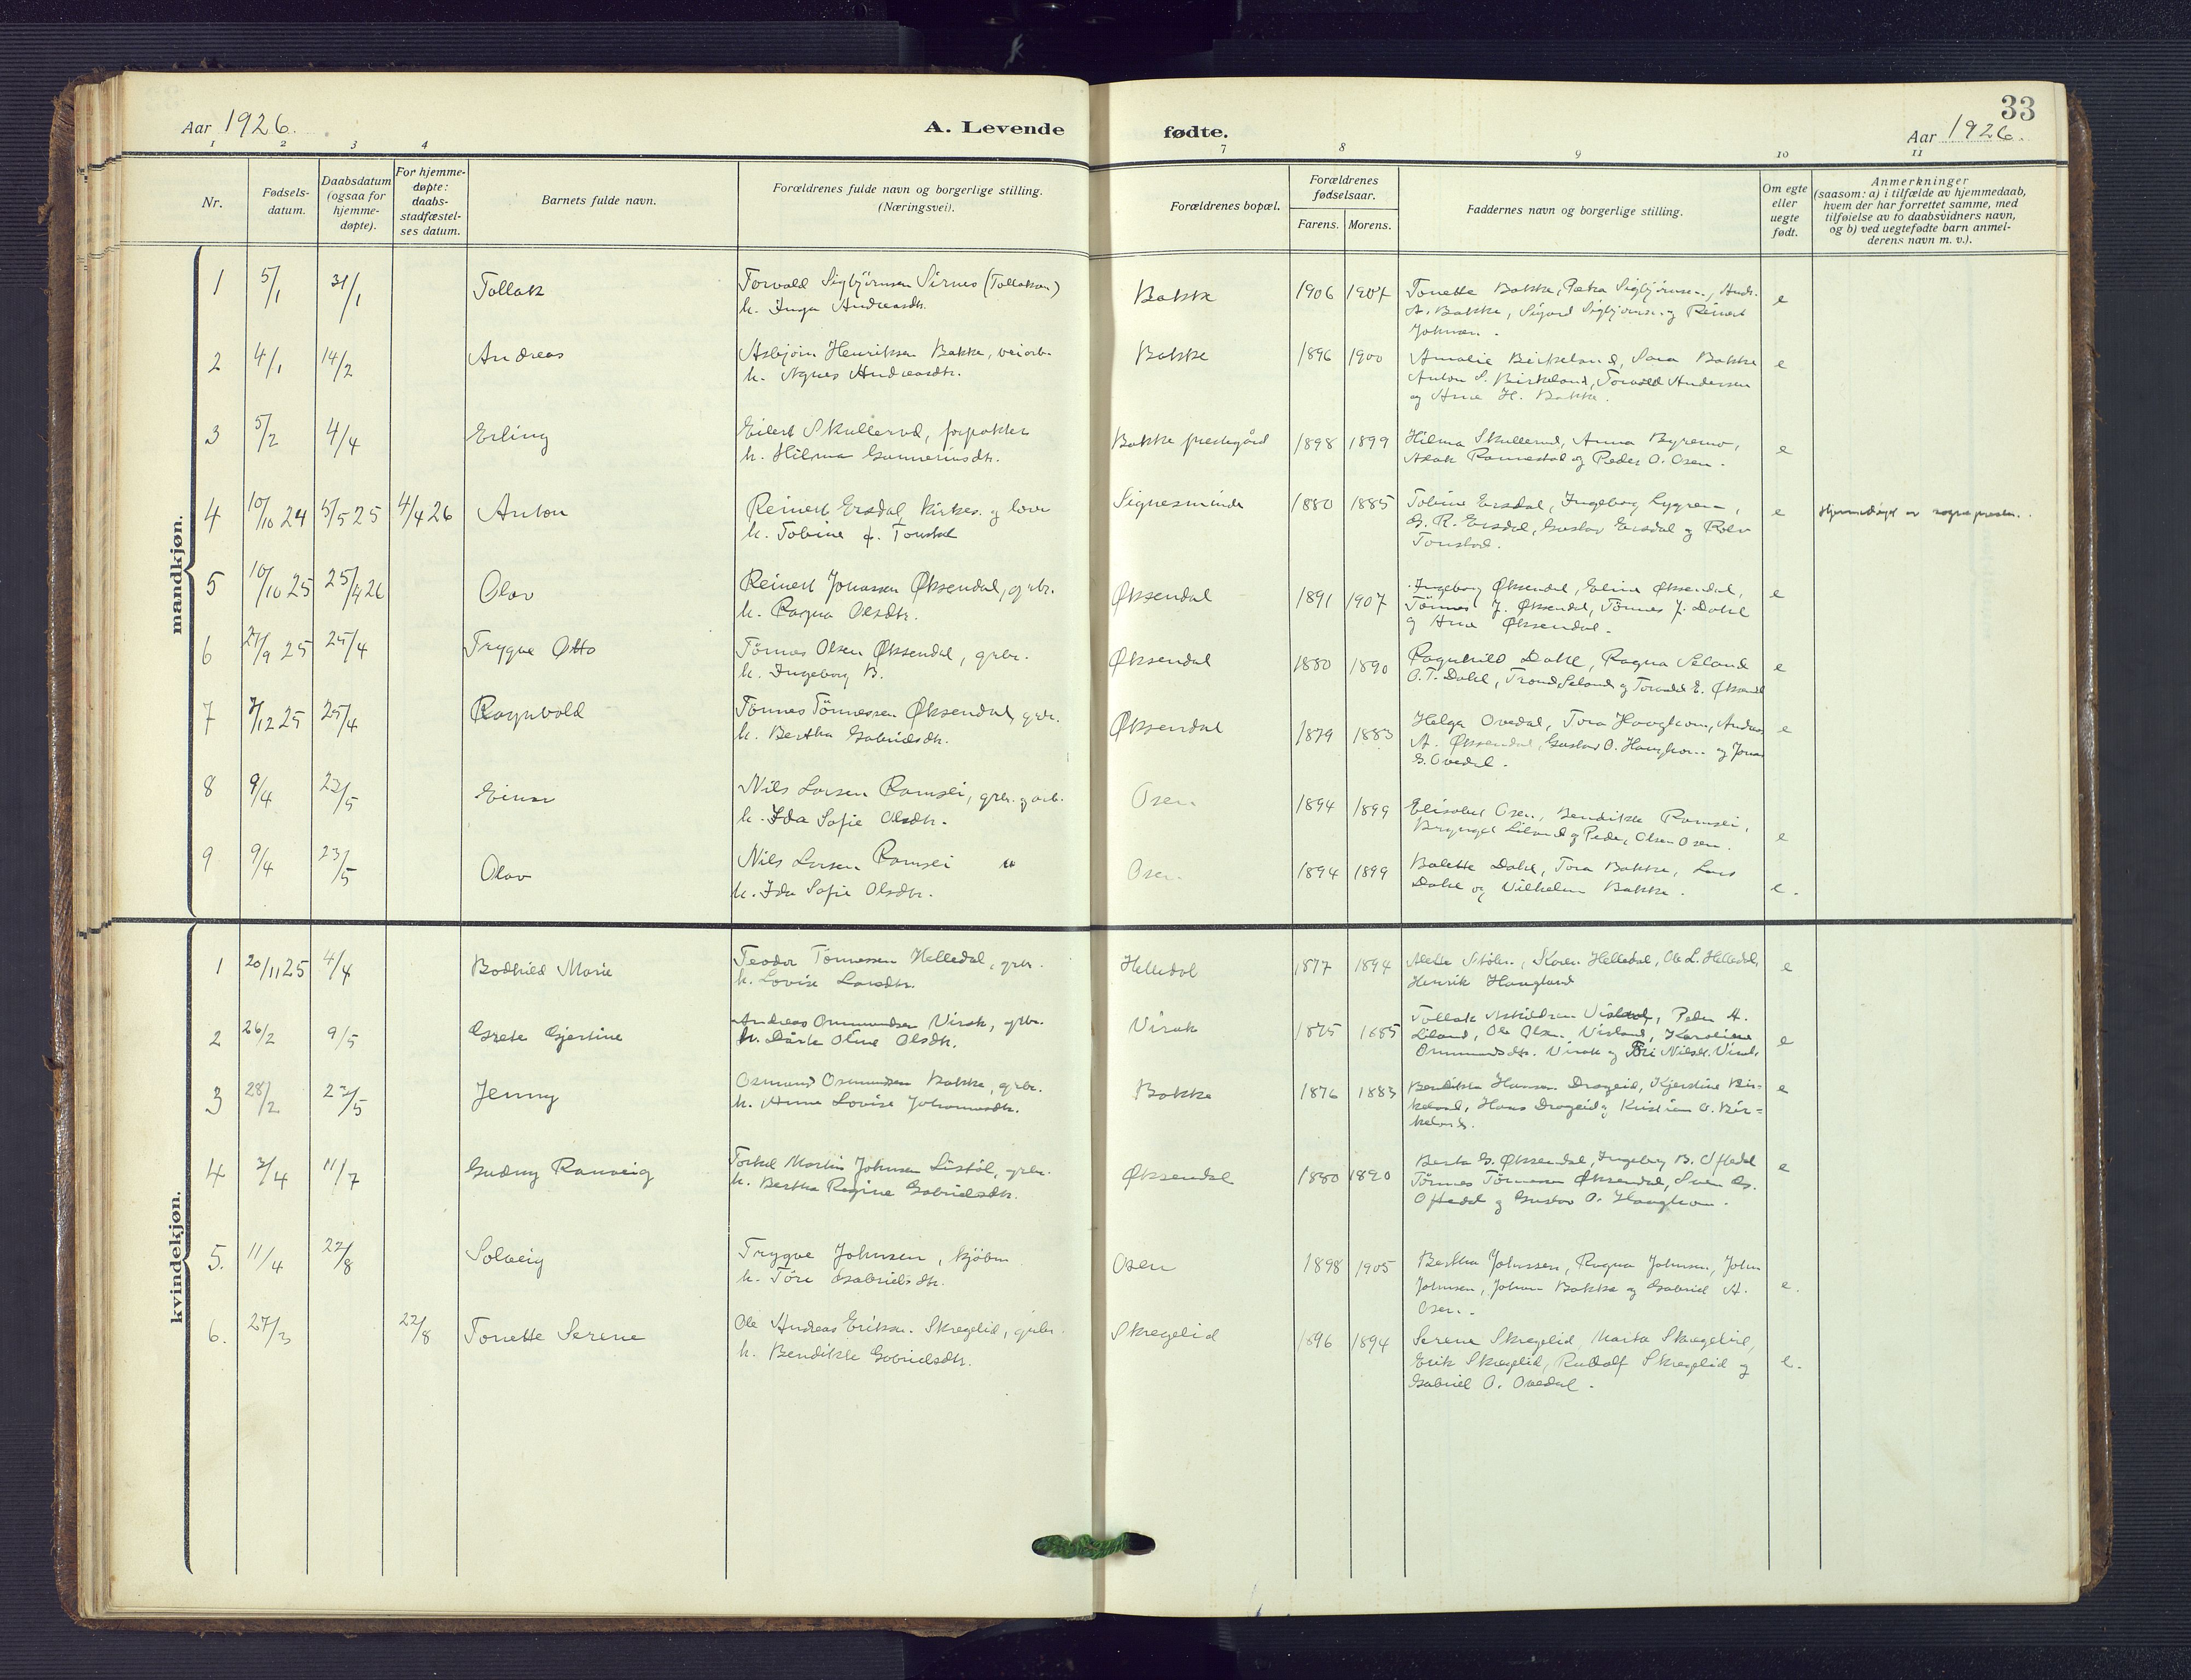 33
Aar 1926.
A. Levende fødte.
Aar 1926.
1 2 3 4 7 8 9 10 11
Nr.
Fødsels-
datum.
Daabsdatum
(ogsaa for
hjemme-
døpte).
For hjemme-
døpte:
daabs-
stadfæstel-
ses datum.
Barnets fulde navn.
Forældrenes fulde navn og borgerlige stilling.
(Næringsvei).
Forældrenes bopæl.
Forældrenes
fødselsaar.
Farens. Morens.
Faddernes navn og borgerlige stilling.
Om egte
eller
uegte
født.
Anmerkninger
(saasom: a) i tilfælde av hjemmedaab,
hvem der har forrettet samme, med
tilføielse av to daabsvidners navn,
og b) ved uegtefødte barn anmel-
derens navn m. v.).
mandkjøn.
1 5/1 31/1 Tollak
Torvald Sigbjørnsen Sirnes (Tollaksen)
h. Inga Andreasdtr.
Bakke 1906 1907
Tonette Bakke, Petra Sigbjørnsen, Andr.
A. Bakke, Sigurd Sigbjørnsen og Reinert
Johnsen.
e
2 4/1 14/2 Andreas
Asbjørn Henriksen Bakke, veiarb.
h. Agnes Andreasdtr.
Bakke 1896 1900
Amalie Birkeland, Sara Bakke
Anton S. Birkeland, Torvald Andersen
og Arne H. Bakke.
e
3 5/2 4/4 Erling
Eilert Skullerud, forpakter
h. Hilma Gunneriusdtr.
Bakke prestegård 1898 1899
Hilma Skullerud, Anna Byremo,
Aslak Rannestad og Peder O. Osen.
e
4 10/10 24 5/5 25 4/4 26 Anton
Reinert Ersdal, kirkes. og lærer
h. Tobine f. Tonstad
Signesminde 1880 1885
Tobine Ersdal, Ingeborg Lygren,
G. R. Ersdal, Gustav Ersdal og Rolv
Tonstad.
e Hjemmedøpt av sognepresten.
5 10/10 25 25/4 26 Olav
Reinert Jonassen Øksendal, grbr.
h. Ragna Olsdtr.
Øksendal 1891 1907
Ingeborg Øksendal, Eline Øksendal,
Tønnes J. Øksendal, Tønnes J. Dahl
og Arne Øksendal.
e
6 27/9 25 25/4 Trygve Otto
Tønnes Olsen Øksendal, grbr.
h. Ingeborg B.
Øksendal 1880 1890
Ragnhild Dahl, Ragna Seland
O. T. Dahl, Trond Seland og Torvald E. Øksendal
e
7 7/12 25 25/4 Ragnvald
Tønnes Tønnessen Øksendal, grbr.
h. Bertha Gabrielsdtr.
Øksendal 1879 1883
Helga Ovedal, Tora Haughom, Andreas
A. Øksendal, Gustav O. Haughom og Jonas
G. Ovedal.
e
8 9/4 23/5 Einar
Nils Larsen Ramsei, grbr. og arb.
h. Ida Sofie Olsdtr.
Osen 1894 1899
Elisabet Osen, Bendikte Ramsei,
Bryngel Liland og Peder Olsen Osen.
e
9 9/4 23/5 Olav
Nils Larsen Ramsei "
h. Ida Sofie Olsdtr.
Osen 1894 1899
Bolette Dahl, Tora Bakke, Lars
Dahl og Vilhelm Bakke.
e.
kvindekjøn.
1 20/11 25 4/4 Bodhild Marie
Teodor Tønnessen Helledal, grbr.
h. Lovise Larsdtr.
Helledal 1877 1894
Mette Stølen, Karen Helledal, Ole L. Helledal,
Henrik Haugland
e
2 26/2 9/5 Grete Gjertine
Andreas Ommundsen Virak, grbr.
h. Dårte Oline Olsdtr.
Virak 1875 1885
Tollak Askildsen Visland, Peder A.
Liland, Ole Olsen Visland, Karoline
Ommundsdtr. Virak og Siri Nilsdtr. Virak
e
3 28/2 23/5 Jenny
Osmund Osmundsen Bakke, grbr.
h. Anne Lovise Johannesdtr.
Bakke 1876 1883
Bendikte Hansen Drageid, Kjerstine Bir-
keland, Hans Drageid, Kristian O. Bir-
keland.
e
4 3/4 11/7 Gudny Ranveig
Torkel Martin Johnsen Listøl, grbr.
h. Bertha Regine Gabrielsdtr.
Øksendal 1880 1890
Berta G. Øksendal, Ingeborg B. Oftedal
Tønnes Tønnessen Øksendal, Sven Os.
Oftedal og Gustav O. Haughom.
e
5. 11/4 22/8 Solveig
Trygve Johnsen, kjøbm
h. Tøre Gabrielsdtr.
Osen 1898 1905
Bertha Johnssen, Ragna Johnsen, John
Johnsen, Johan Bakke og Gabriel A.
Osen.
e.
6. 27/3 22/8 Tonette Serene
Ole Andreas Eriksen Skregelid, grbr.
h. Bendikte Gabrielsdtr.
Skregelid 1896 1894
Serene Skregelid, Marta Skregelid,
Erik Skregelid, Rudolf Skregelid og
Gabriel O. Ovedal.
e.